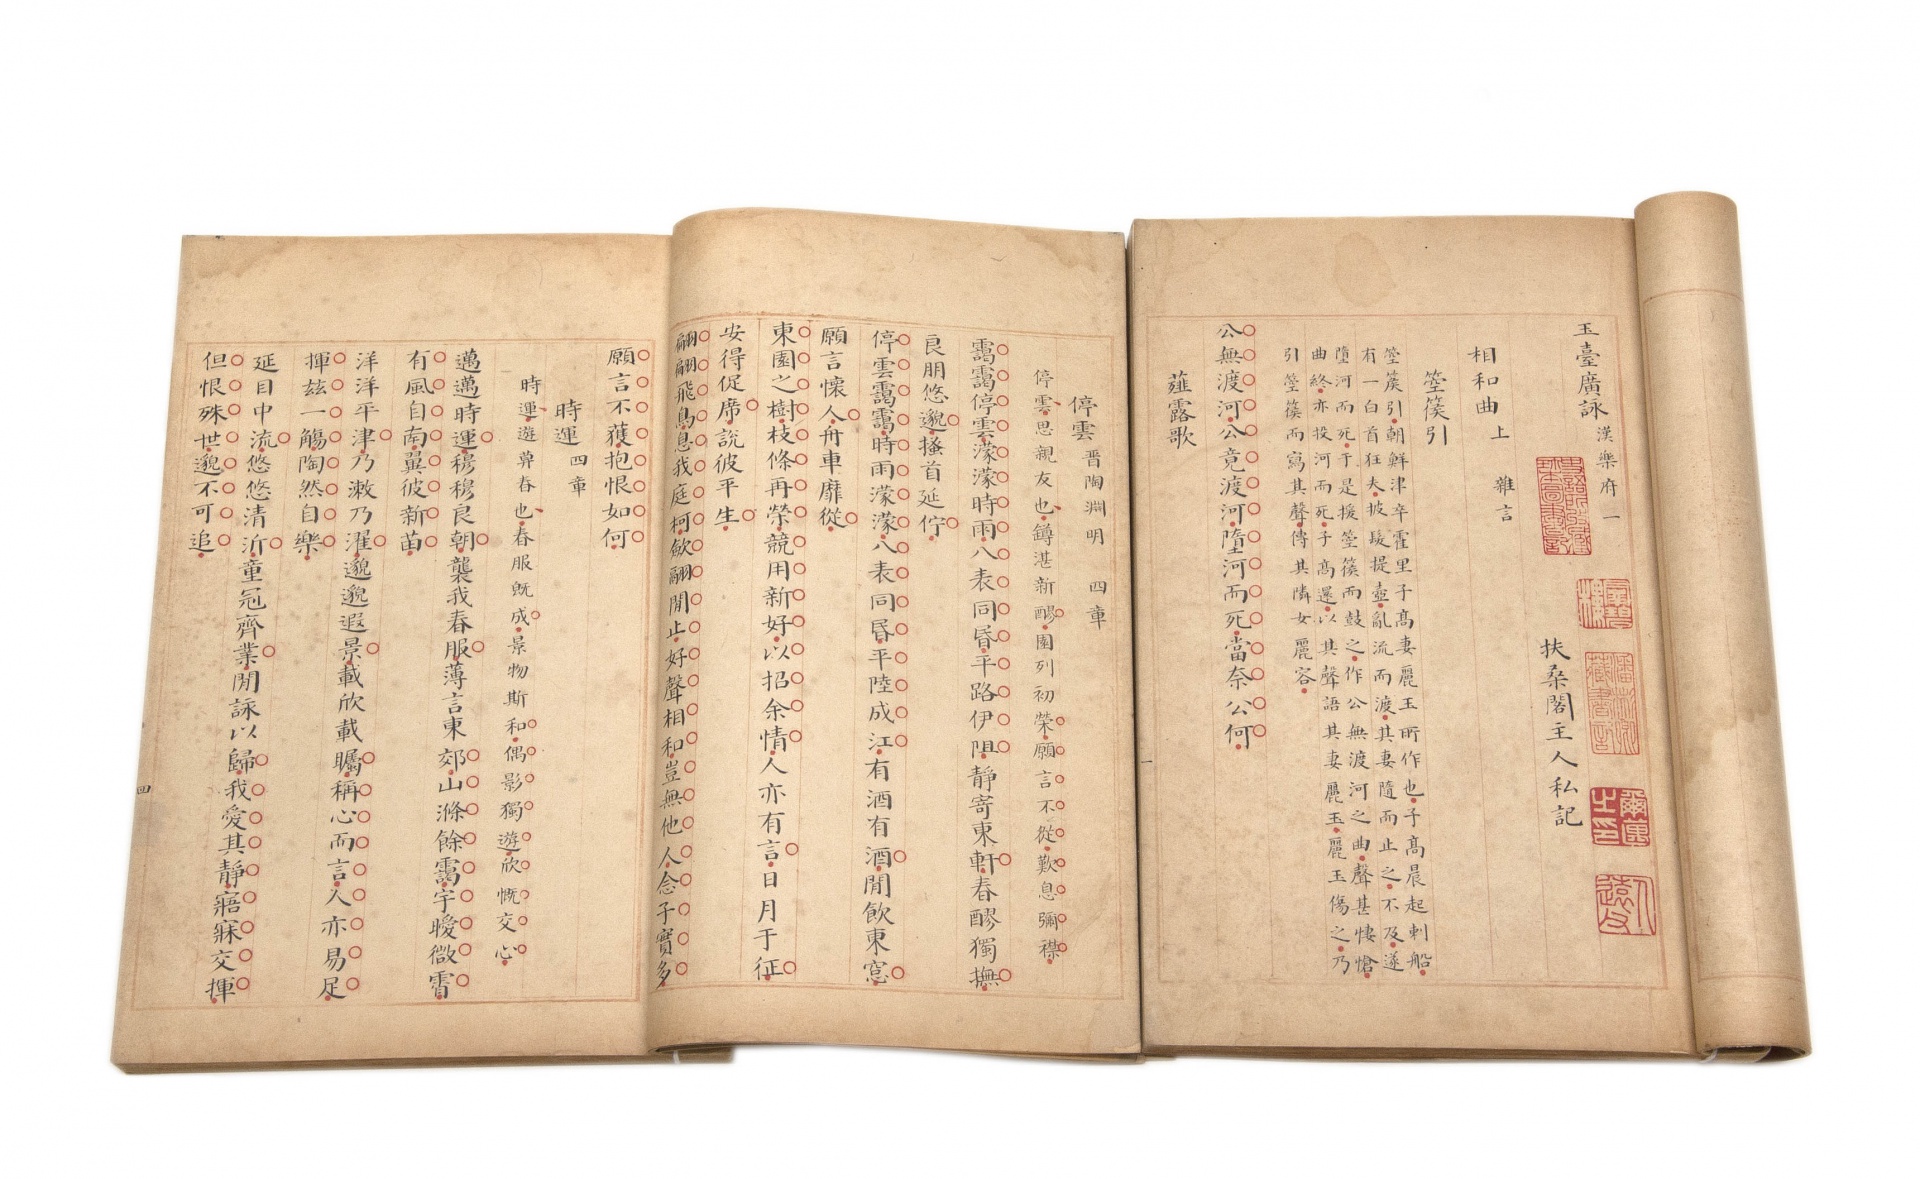 玉臺廣詠 漢樂府一
扶桑閣主人私記
相和曲上 雜言
箜篌引
箜篌引朝鮮津卒霍里子高妻麗玉所作也子高晨起刺船
有一白首狂夫披髮提壺亂流而渡其妻隨而止之不及遂
墮河而死于是援箜篌而鼓之作公無渡河之曲聲甚悽愴
曲終亦投河而死子高還以其聲語其妻麗玉麗玉傷之乃
引箜篌而寫其聲傳其隣女麗容
公無渡河公竟渡河墮河而死當奈公何
薤露歌
一
停雲 晋陶淵明 四章
停雲思親友也罇湛新醪園列初榮願言不從歎息彌襟
靄靄停雲濛濛時雨八表同昬平路伊阻靜寄東軒春醪獨撫
良朋悠邈搔首延佇
停雲靄靄時雨濛濛八表同昬平陸成江有酒有酒閒飲東窓
願言懷人舟車靡從
東園之樹枝條再榮競用新好以招余情人亦有言日月于征
安得促席說彼平生
翩翩飛鳥息我庭柯歛翮閒止好聲相和豈無他人念子實多
願言不獲抱恨如何
時運 四章
時運遊暮春也春服既成景物斯和偶影獨遊欣慨交心
邁邁時運穆穆良朝襲我春服薄言東郊山滌餘靄宇曖微霄
有風自南翼彼新苗
洋洋平津乃漱乃濯邈邈遐景載欣載矚稱心而言人亦易足
揮玆一觴陶然自樂
延目中流悠悠清沂童冠齊業閒詠以歸我愛其靜寤寐交揮
但恨殊世邈不可追
四